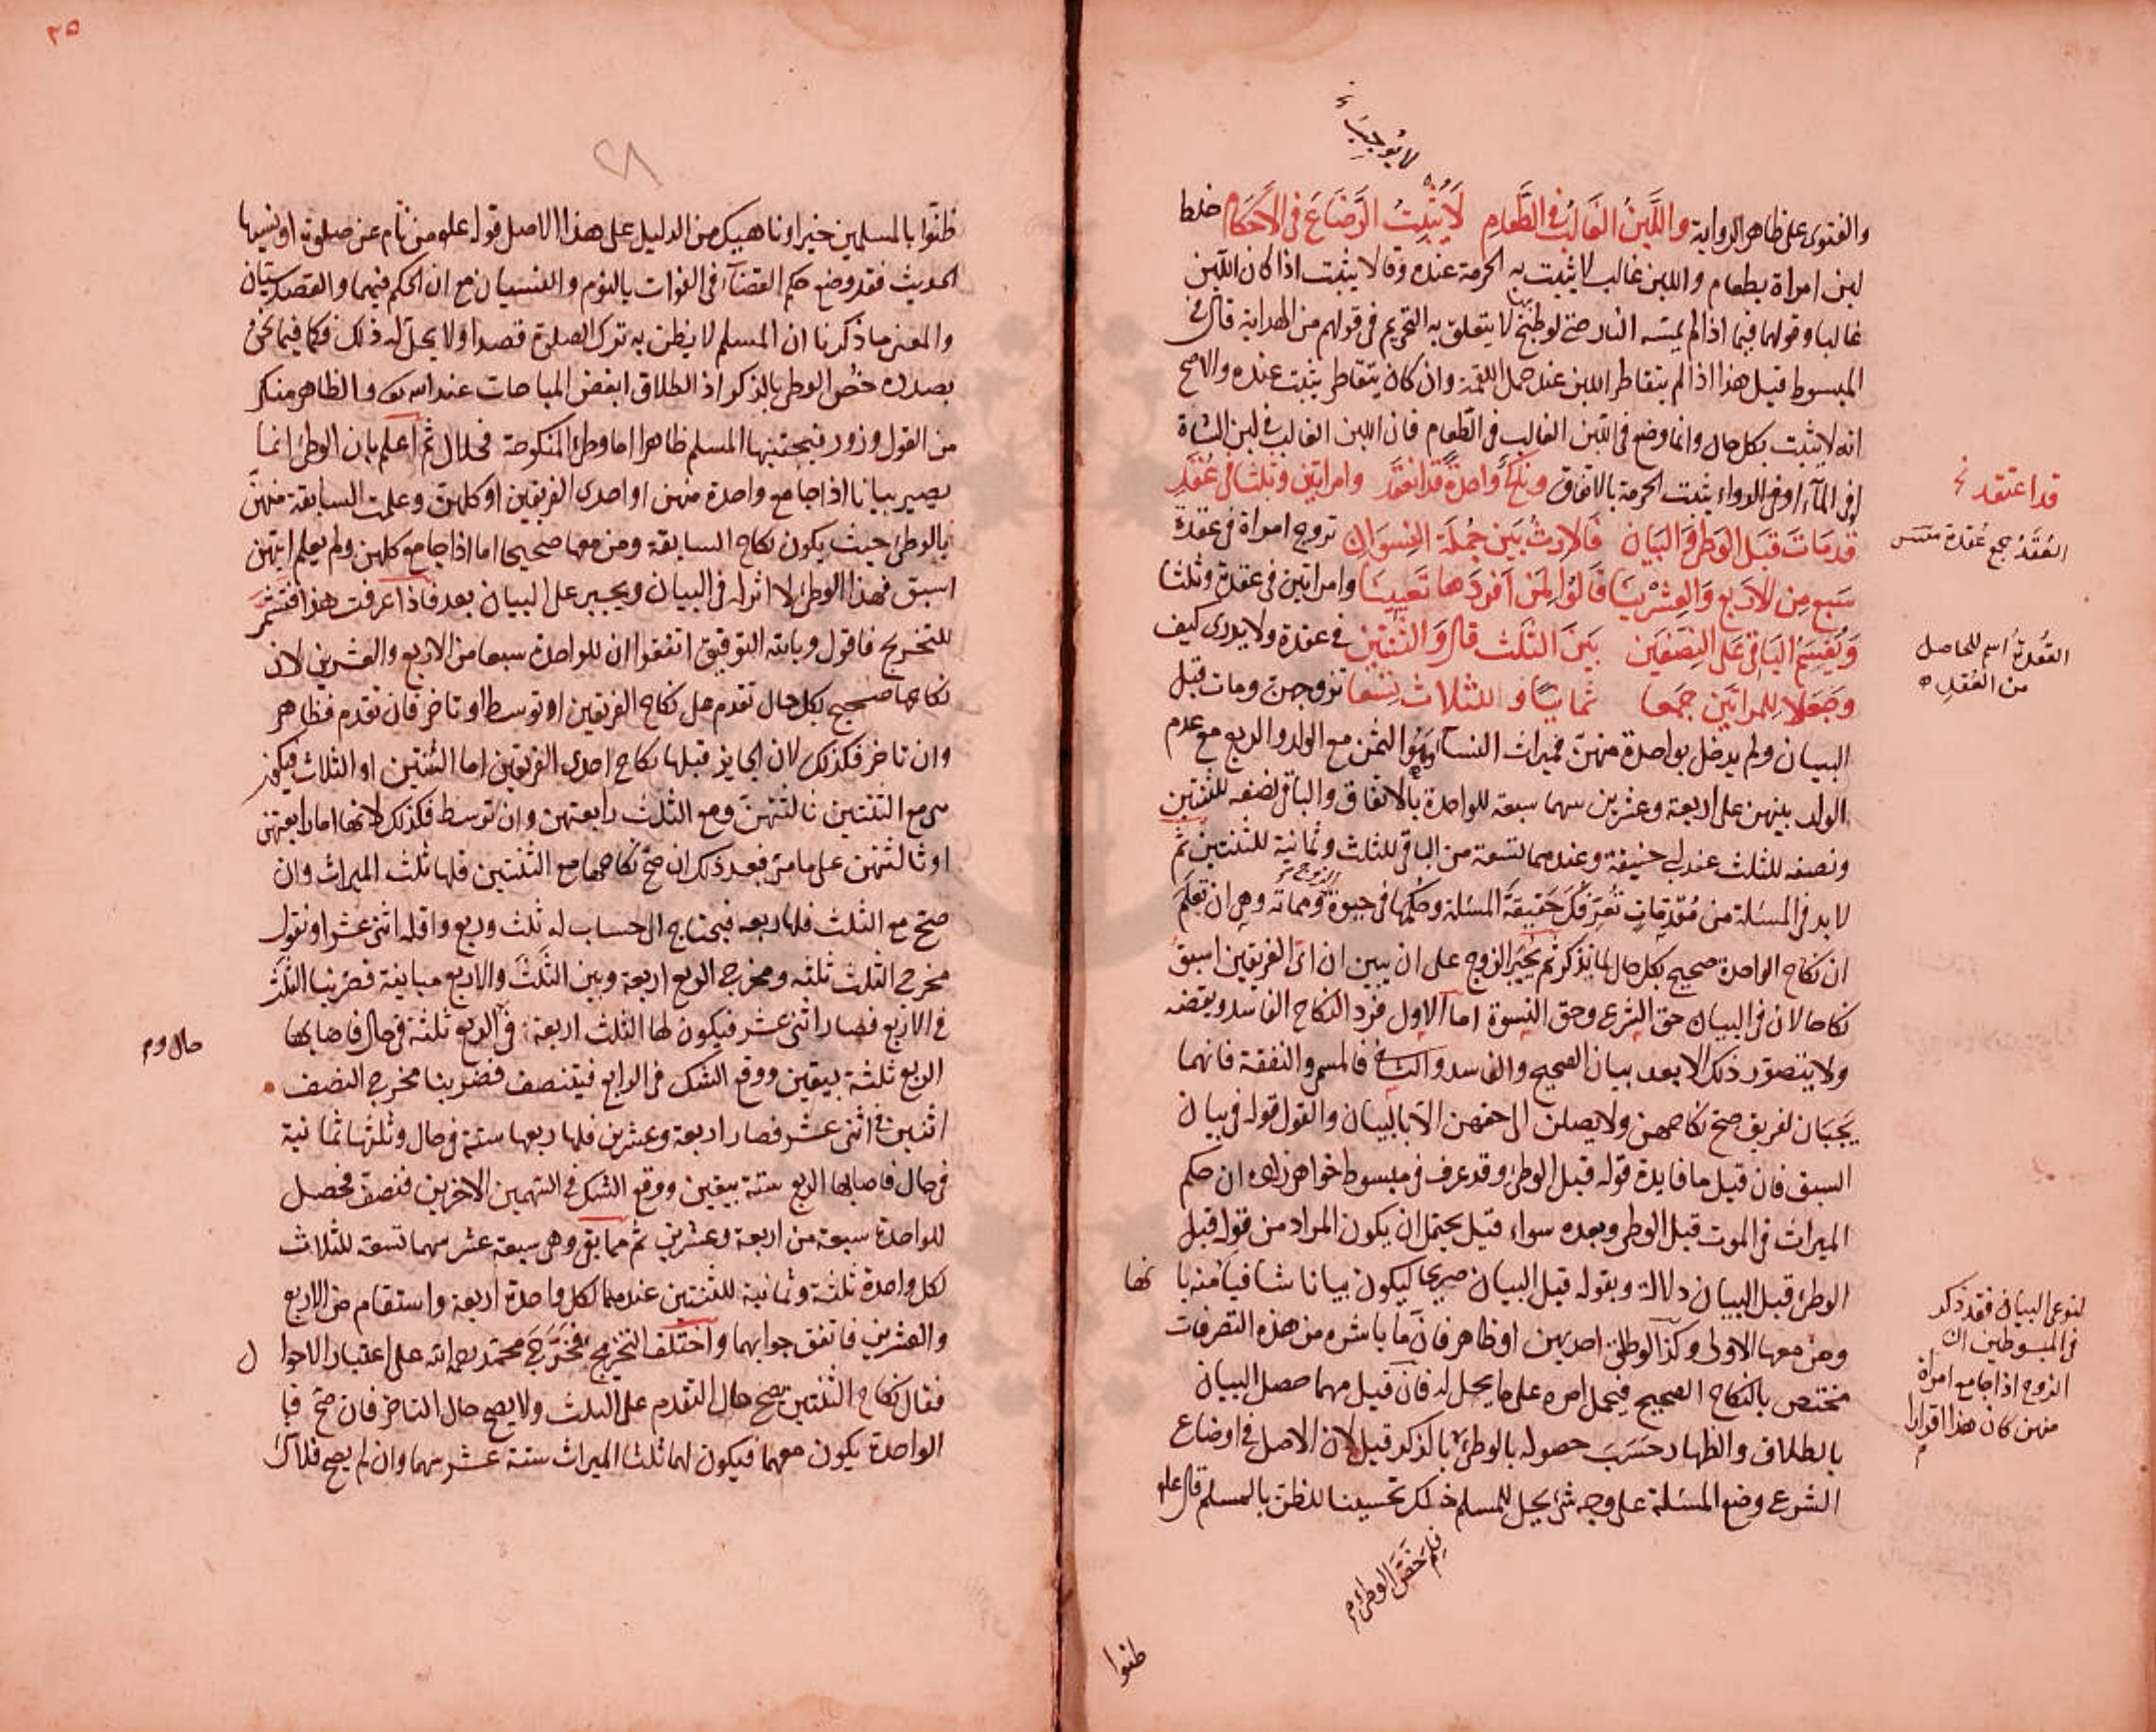 لا يوجب
والفتوى على ظاهر الرواية واللبن الغالب في الطعام لا يثبت الرضاع في الاحكام خلط
لبن امراة بطعام واللبن غالب لا يثبت به الحرمة عنده وقالا يثبت اذا كان اللبن
غالبا وقولهما فيما اذا لم يمسه النار حتى لو طبخ لا يتعلق به التحريم في قولهم من الهداية قال في
المبسوط قيل هذا اذا لم يتقاطر اللبن عند حمل اللقمة وان كان يتقاطر يثبت عنده والاصح
انه لا يثبت بكل حال وانما وضع في اللبن الغالب في الطعام فان اللبن الغالب في لبن الشاة
او في الماء او في الدواء يثبت الحرمة بالاتفاق وناكح واحدة قد انعقد وامراتين وثلثا في عقد
قد اعتقد
العقد جمع عقدة
قد مات قبل الوطئ والبيان فالارث بين جملة النسوان تزوج امراة في عقدة
سبع من الاربع والعشرينا قالوا لمن افردها تعيينا وامراتين في عقدة وثلثا
ويقسم الباقي على النصفين بين الثلث قال والثنتين في عقدة ولا يدرى كيف
العقدة اسم للحاصل
من العقد
وجعلا للمراتين جمعا ثمانيا وللثلاث تسعا تزوجهن ومات قبل
البيان ولم يدخل بواحدة منهن فميراث النساء وهو الثمن مع الولد والربع مع عدم
الولد بينهن على اربعة وعشرين سهما سبعة للواحدة بالاتفاق والباقي نصفه للثنتين
ونصفه للثلث عند ابي حنيفة وعندهما تسعة من الباقي للثلث وثمانية للثنتين ثم
لا بد في المسئلة من مقدمات تعرفك حقيقة المسئلة وحكمها في حيوة الزوج ومماته وهي ان تعلم
ان نكاح الواحدة صحيح بكل حال لما نذكر ثم يجبر الزوج على ان يبين ان اى الفريقين اسبق
نكاحا لان في البيان حق الشرع وحق النسوة اما الاول فرد النكاح الفاسد ونقضه
ولا يتصور ذلك الا بعد بيان الصحيح والفاسد والثاني فالمهر والنفقة فانهما
يجبان لفريق صح نكاحهن ولا يصلن الى حقهن الا بالبيان والقول قوله في بيان
السبق فان قيل ما فايدة قوله قبل الوطئ وقد عرف في مبسوط خواهر زاده ان حكم
الميراث في الموت قبل الوطئ وبعده سواء قيل يحتمل ان يكون المراد من قوله قبل
الوطئ قبل البيان دلالة وبقوله قبل البيان صريحا ليكون بيانا شافيا منه بانها
لنوعى البيان فقد ذكر
في المبسوطين ان
الزوج اذا جامع امراة
منهن كان هذا اقرارا
ومن معها الاولى وكذا لو طلق احديهن او ظاهر فان ما باشره من هذه التصرفات
مختص بالنكاح الصحيح فيحمل امره على ما يحل له فان قيل مهما حصل البيان
بالطلاق والظهار حسب حصوله بالوطئ بالذكر قيل لان الاصل في اوضاع
الشرع وضع المسئلة على وجه يحل للمسلم ذلك تحسينا للظن بالمسلم قال عليه
فلم خص الوطئ
ظنوا
٢٥
٢٨
ظنوا بالمسلمين خيرا وناهيك من الدليل على هذا الاصل قوله عليه من نام عن صلوة او نسيها
الحديث فقد وضع حكم القضاء في الفوات بالنوم والنسيان مع ان الحكم فيهما والقصد سيان
والمعنى ما ذكرنا ان المسلم لا يظن به ترك الصلوة قصدا ولا يحل له ذلك فكذا فيما نحن
بصدده خص الوطئ بالذكر اذ الطلاق ابغض المباحات عند الله تعالى والظاهر منكر
من القول وزور فيجتنبها المسلم ظاهرا اما وطئ المنكوحة فحلال ثم اعلم بان الوطئ انما
يصير بيانا اذا جامع واحدة منهن او احدى الفريقين او كلهن وعلمت السابقة منهن
بالوطئ حيث يكون نكاح السابقة ومن معها صحيحا اما اذا جامع كلهن ولم يعلم ايتهن
اسبق فهذا الوطئ لا اثر له في البيان ويجبر على البيان بعد فاذا عرفت هذا فتشمر
للتخريج فاقول وبالله التوفيق اتفقوا ان للواحدة سبعا من الاربع والعشرين لان
نكاحها صحيح بكل حال تقدم على نكاح الفريقين او توسط او تاخر فان تقدم فظاهر
وان تاخر فكذلك لان الجايز قبلها نكاح احدى الفريقين اما الثنتين او الثلاث فيكون
هي مع الثنتين ثالثتهن ومع الثلث رابعتهن وان توسط فكذلك لانها اما رابعتهن
او ثالثتهن على ما مر فبعد ذلك ان صح نكاحها مع الثنتين فلها ثلث الميراث وان
صح مع الثلث فلها ربعه فيحتاج الى حساب له ثلث وربع واقله اثنى عشر او نقول
مخرج الثلث ثلثه ومخرج الربع اربعة وبين الثلث والاربع مباينة فضربنا الثلث
في الاربع فصار اثنى عشر فيكون لها الثلث اربعة في حال والربع ثلثة في حال فاصابها
الربع ثلثة بيقين ووقع الشك في الرابع فيتنصف فضربنا مخرج النصف
اثنين في اثنى عشر فصار اربعة وعشرين فلها ربعها ستة في حال وثلثها ثمانية
في حال فاصابها الربع ستة بيقين ووقع الشك في السهمين الاخرين فنصف فحصل
للواحدة سبعة من اربعة وعشرين ثم مما بقي وهي سبعة عشر سهما تسعة للثلاث
لكل واحدة ثلثة وثمانية للثنتين عندهما لكل واحدة اربعة واستقام من الاربع
والعشرين فاتفق جوابهما واختلف التخريج فخرج محمد رحمه الله على اعتبار الاحوال
فقال نكاح الثنتين يصح حال التقدم على الثلث ولا يصح حال التاخر فان صح فبا
الواحدة يكون معهما فيكون لهما ثلثا الميراث ستة عشر سهما وان لم يصح فلا